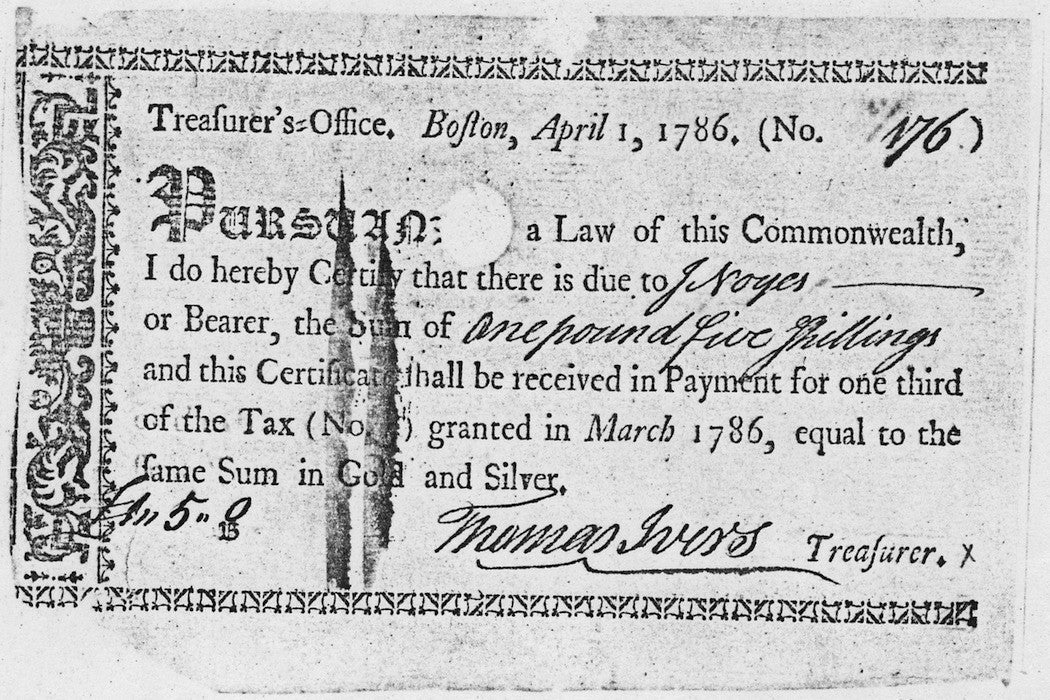 Treaſurer's-Office. Boſton, April 1, 1786. (No. 176)
PURSUAN: a Law of this Commonwealth,
I do hereby Certify that there is due to J Noyes
or Bearer, the Sum of One pound five Shillings
and this Certificate ſhall be received in Payment for one third
of the Tax (No. ) granted in March 1786, equal to the
ſame Sum in Gold and Silver.
5 " 0
15
Thomas Ivers Treaſurer. x